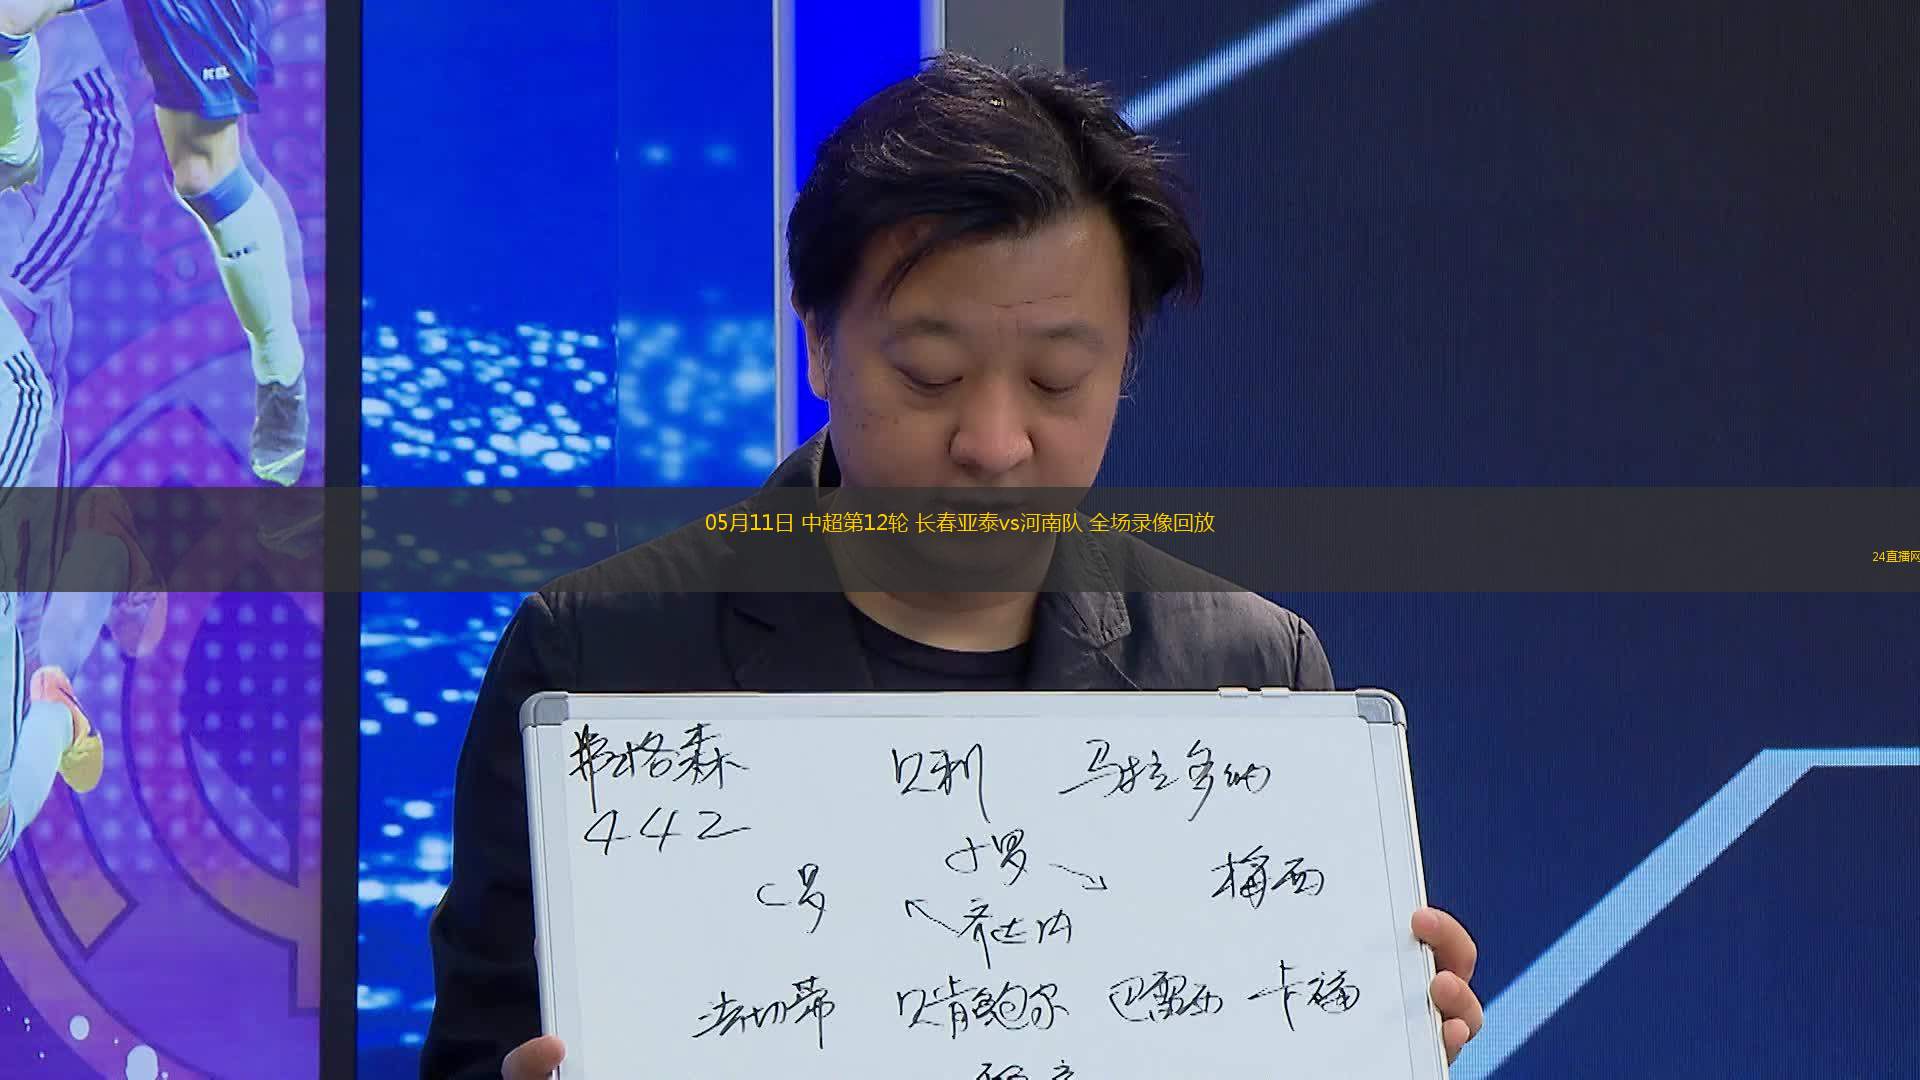 05月11日 中超第12轮 长春亚泰vs河南队 全场录像回放
24直播网
弗格森 贝利 马拉多纳
442
小罗
C罗 梅西
齐达内
法切蒂 贝肯鲍尔 巴雷西 卡福